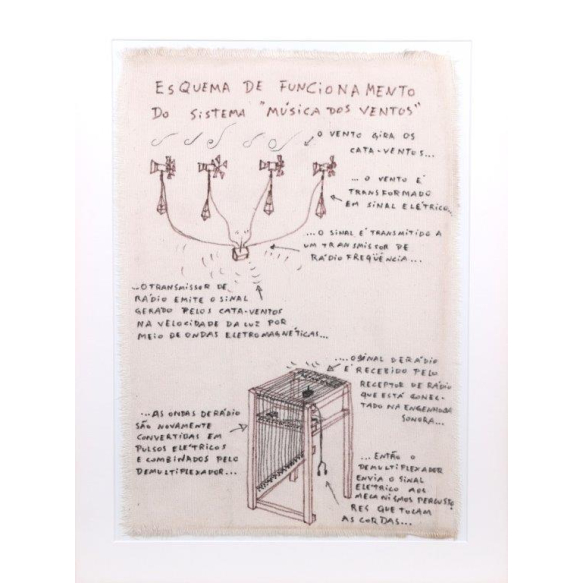 ESQUEMA DE FUNCIONAMENTO
DO SISTEMA "MÚSICA DOS VENTOS"
O VENTO GIRA OS
CATA-VENTOS...
... O VENTO É
TRANSFORMADO
EM SINAL ELÉTRICO...
...O SINAL É TRANSMITIDO A
UM TRANSMISSOR DE
RÁDIO FREQÜÊNCIA...
...O TRANSMISSOR DE
RÁDIO EMITE O SINAL
GERADO PELOS CATA-VENTOS
NA VELOCIDADE DA LUZ POR
MEIO DE ONDAS ELETROMAGNÉTICAS...
....O SINAL DE RÁDIO
É RECEBIDO PELO
RECEPTOR DE RÁDIO
QUE ESTÁ CONEC-
TADO NA ENGENHOCA
SONORA...
...AS ONDAS DE RÁDIO
SÃO NOVAMENTE
CONVERTIDAS EM
PULSOS ELÉTRICOS
E COMBINADOS PELO
DEMULTIPLEXADOR...
... ENTÃO O
DEMULTIPLEXADOR
ENVIA O SINAL
ELÉTRICO AOS
MECANISMOS PERCUSSO-
RES QUE TOCAM
AS CORDAS...